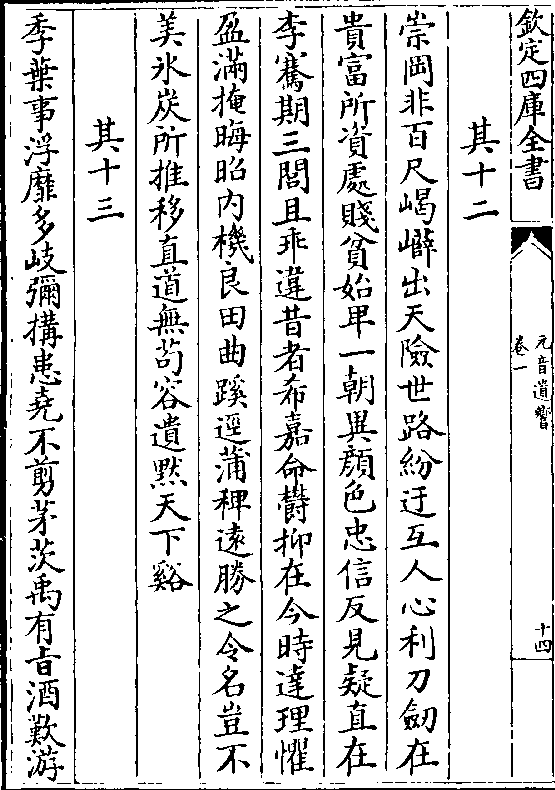 欽定四庫全書
元音遺響
卷一
十四
其十二
崇岡非百尺嵑嶭出天險世路紛迂互人心利刀劒在
貴富所資處賤貧始卑一朝異顔色忠信反見疑直在
李騫期三閭且乖違昔者希嘉命欝抑在今時達理懼
盈滿掩晦昭内機良田曲蹊逕蒲稗逺勝之令名豈不
美氷炭所推移直道無苟容遺黙天下谿
其十三
季葉事浮靡多岐彌搆患堯不剪茅茨禹有㫖酒歎游